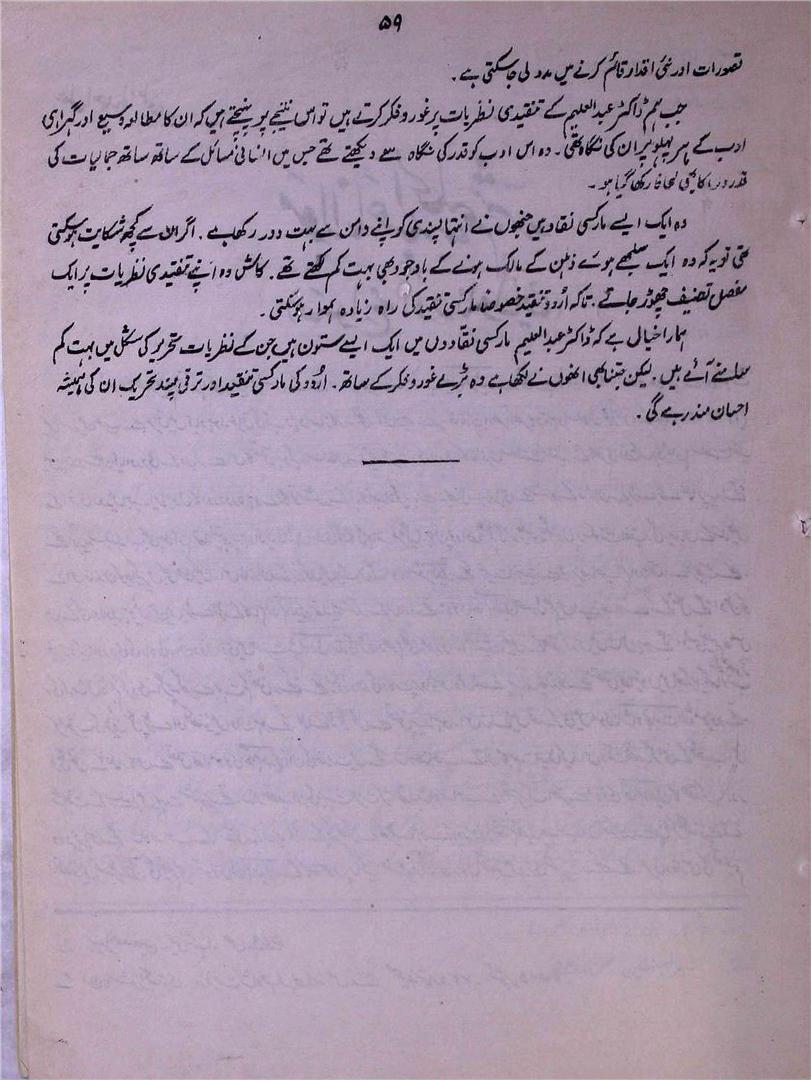 ۵۹
تصورات اور نئی اقدار قائم کرنے میں مدد لی جاسکتی ہے۔
جب ہم ڈاکٹر عبدالعلیم کے تنقیدی نظریات پر غور و فکر کرتے ہیں تو اس نتیجے پر پہنچتے ہیں کہ ان کا مطالعہ وسیع اور گہرا ہی
ادب کے ہر پہلو پر ان کی نگاہ تھی۔ وہ اس ادب کو قدر کی نگاہ سے دیکھتے تھے جس میں انسانی مسائل کے ساتھ ساتھ جمالیات کی
قدروں کا بھی لحاظ رکھا گیا ہو۔
وہ ایک ایسے مارکسی نقاد ہیں جنھوں نے انتہا پسندی کو اپنے دامن سے بہت دور رکھا ہے۔ اگر ان سے کچھ شکایت ہوسکتی
تھی تو یہ کہ وہ ایک سلجھے ہوئے ذہن کے مالک ہونے کے باوجود بھی بہت کم لکھتے تھے۔ کاش وہ اپنے تنقیدی نظریات پر ایک
مفصل تصنیف چھوڑ جاتے۔ تاکہ اُردو تنقید خصوصاً مارکسی تنقید کی راہ زیادہ ہموار ہوسکتی۔
ہمارا خیال ہے کہ ڈاکٹر عبدالعلیم مارکسی نقادوں میں ایک ایسے ستون ہیں جن کے نظریات تحریر کی شکل میں بہت کم
سامنے آئے ہیں۔ لیکن جتنا بھی انھوں نے لکھا ہے وہ بڑے غور و فکر کے ساتھ۔ اُردو کی مارکسی تنقید اور ترقی پسند تحریک ان کی ہمیشہ
احسان مند رہے گی۔